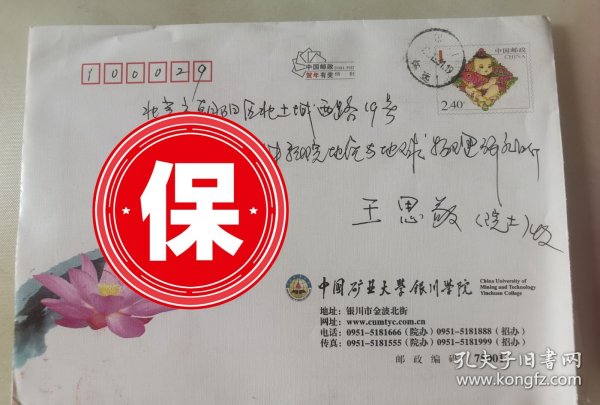 100029
中国邮政
贺年有奖
信封
中国邮政
CHINA
2.40
北京市朝阳区北土城西路19号
院地质与地球物理研究所
保
王思敬(院士)收
中国矿业大学银川学院
China University of
Mining and Technology
Yinchuan College
地址：银川市金波北街
网址：www.cumtyc.com.cn
电话：0951-5181666（院办）0951-5181888（招办）
传真：0951-5181555（院办）0951-5181999（招办）
邮政编码
孔夫子旧书网
www.kongfz.com